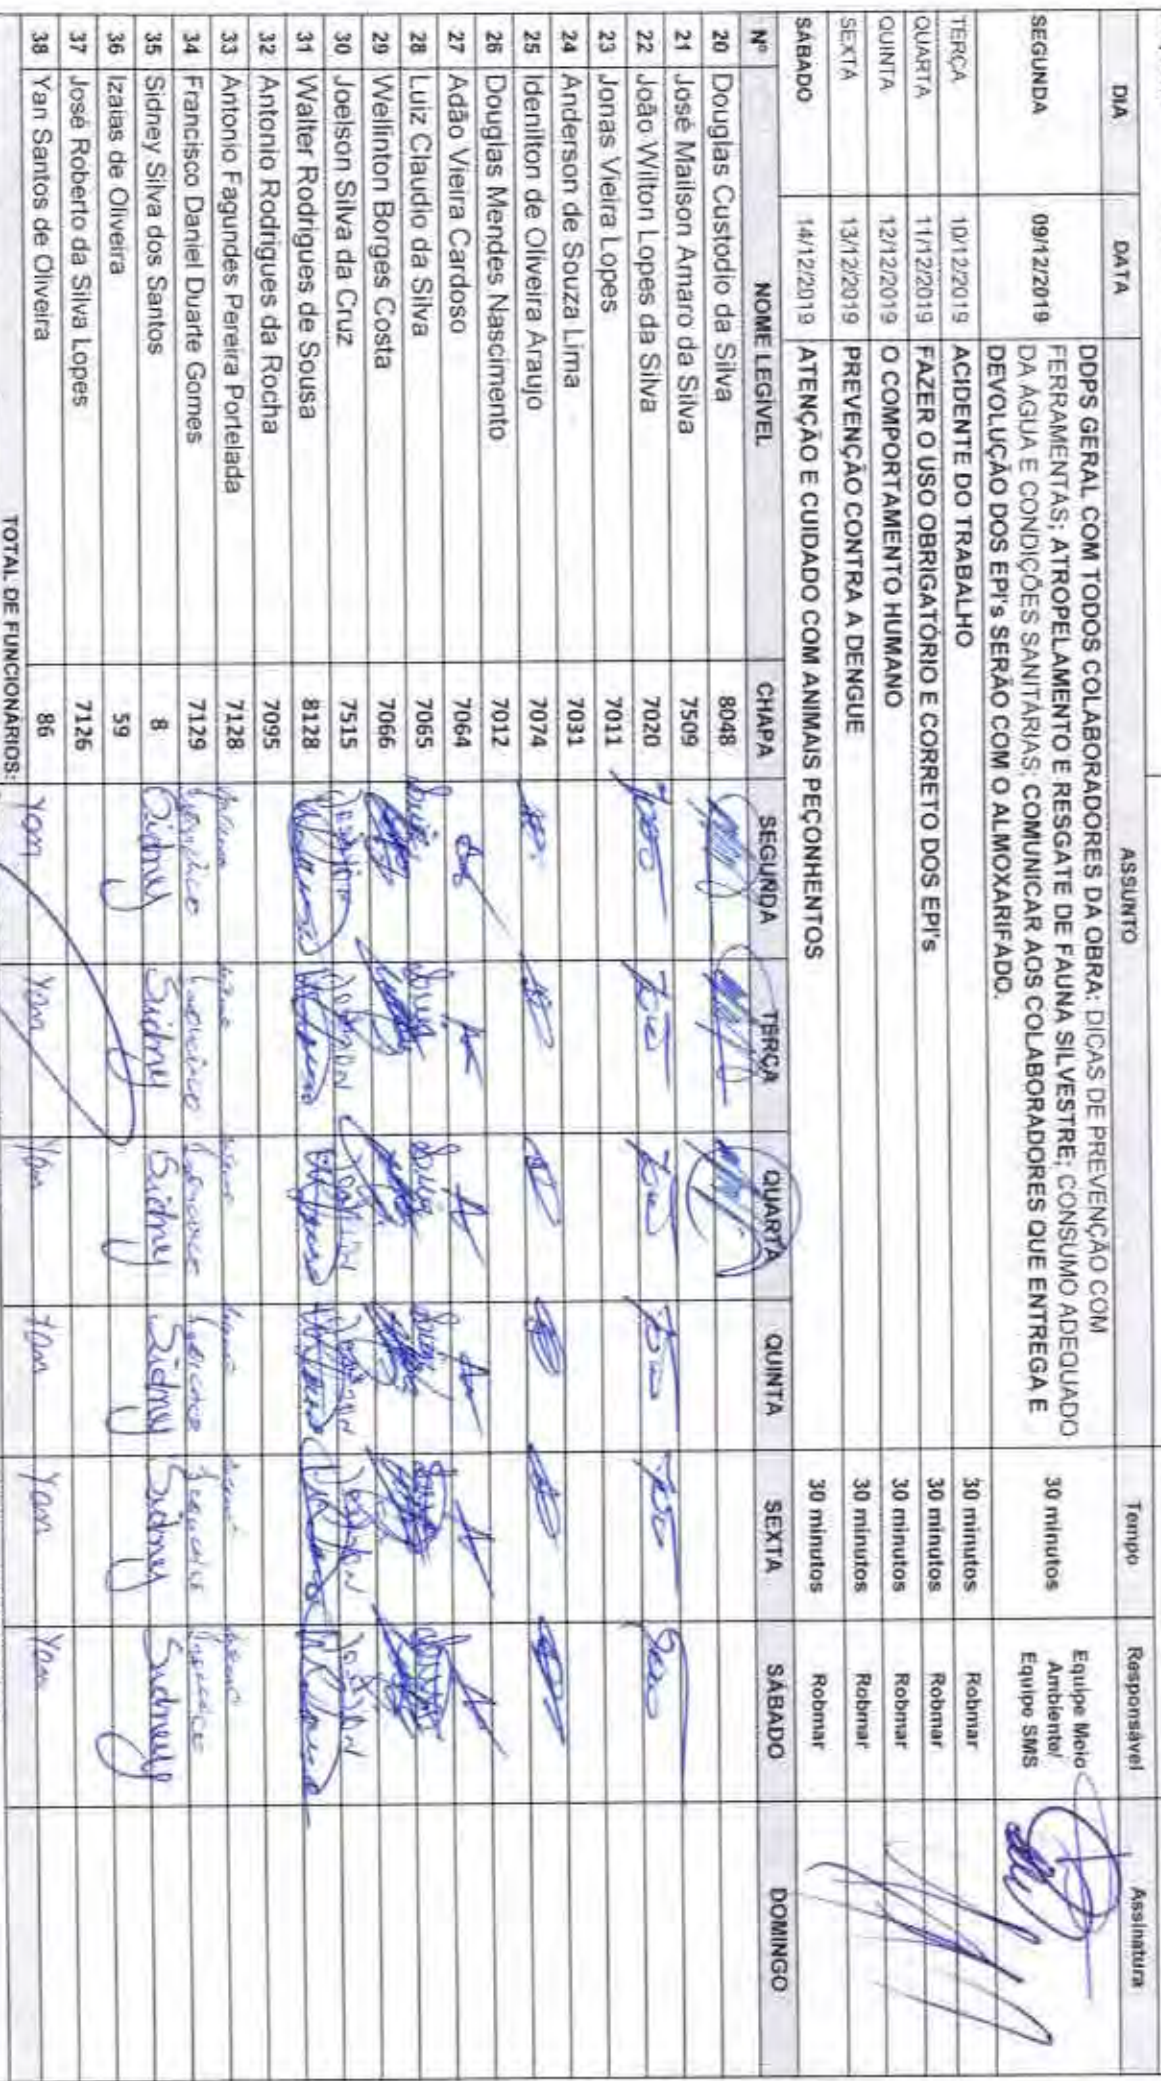 DIA DATA ASSUNTO Tempo Responsável Assinatura
SEGUNDA 09/12/2019 DDPS GERAL COM TODOS COLABORADORES DA OBRA: DICAS DE PREVENÇÃO COM
FERRAMENTAS; ATROPELAMENTO E RESGATE DE FAUNA SILVESTRE; CONSUMO ADEQUADO
DA ÁGUA E CONDIÇÕES SANITÁRIAS; COMUNICAR AOS COLABORADORES QUE ENTREGA E
DEVOLUÇÃO DOS EPI's SERÃO COM O ALMOXARIFADO. 30 minutos Equipe Meio
Ambiente/
Equipe SMS
TERÇA 10/12/2019 ACIDENTE DO TRABALHO 30 minutos Robmar
QUARTA 11/12/2019 FAZER O USO OBRIGATÓRIO E CORRETO DOS EPI's 30 minutos Robmar
QUINTA 12/12/2019 O COMPORTAMENTO HUMANO 30 minutos Robmar
SEXTA 13/12/2019 PREVENÇÃO CONTRA A DENGUE 30 minutos Robmar
SÁBADO 14/12/2019 ATENÇÃO E CUIDADO COM ANIMAIS PEÇONHENTOS 30 minutos Robmar
Nº NOME LEGÍVEL CHAPA SEGUNDA TERÇA QUARTA QUINTA SEXTA SÁBADO DOMINGO
20 Douglas Custodio da Silva 8048
21 José Mailson Amaro da Silva 7509
22 João Wilton Lopes da Silva 7020
23 Jonas Vieira Lopes 7011
24 Anderson de Souza Lima 7031
25 Idenilton de Oliveira Araujo 7074
26 Douglas Mendes Nascimento 7012
27 Adão Vieira Cardoso 7064
28 Luiz Claudio da Silva 7065
29 Wellinton Borges Costa 7066
30 Joelson Silva da Cruz 7515
31 Walter Rodrigues de Sousa 8128
32 Antonio Rodrigues da Rocha 7095
33 Antonio Fagundes Pereira Portelada 7128
34 Francisco Daniel Duarte Gomes 7129
35 Sidney Silva dos Santos 8 Sidney Sidney Sidney Sidney Sidney Sidney
36 Izaias de Oliveira 59
37 José Roberto da Silva Lopes 7126
38 Yan Santos de Oliveira 86 Yan Yan Yan Yan Yan Yan
TOTAL DE FUNCIONÁRIOS: